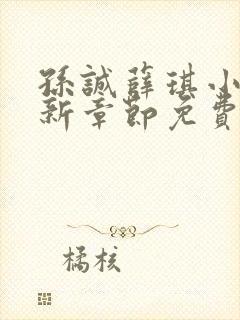 孫誠薛琪小
新章節免費
橘核